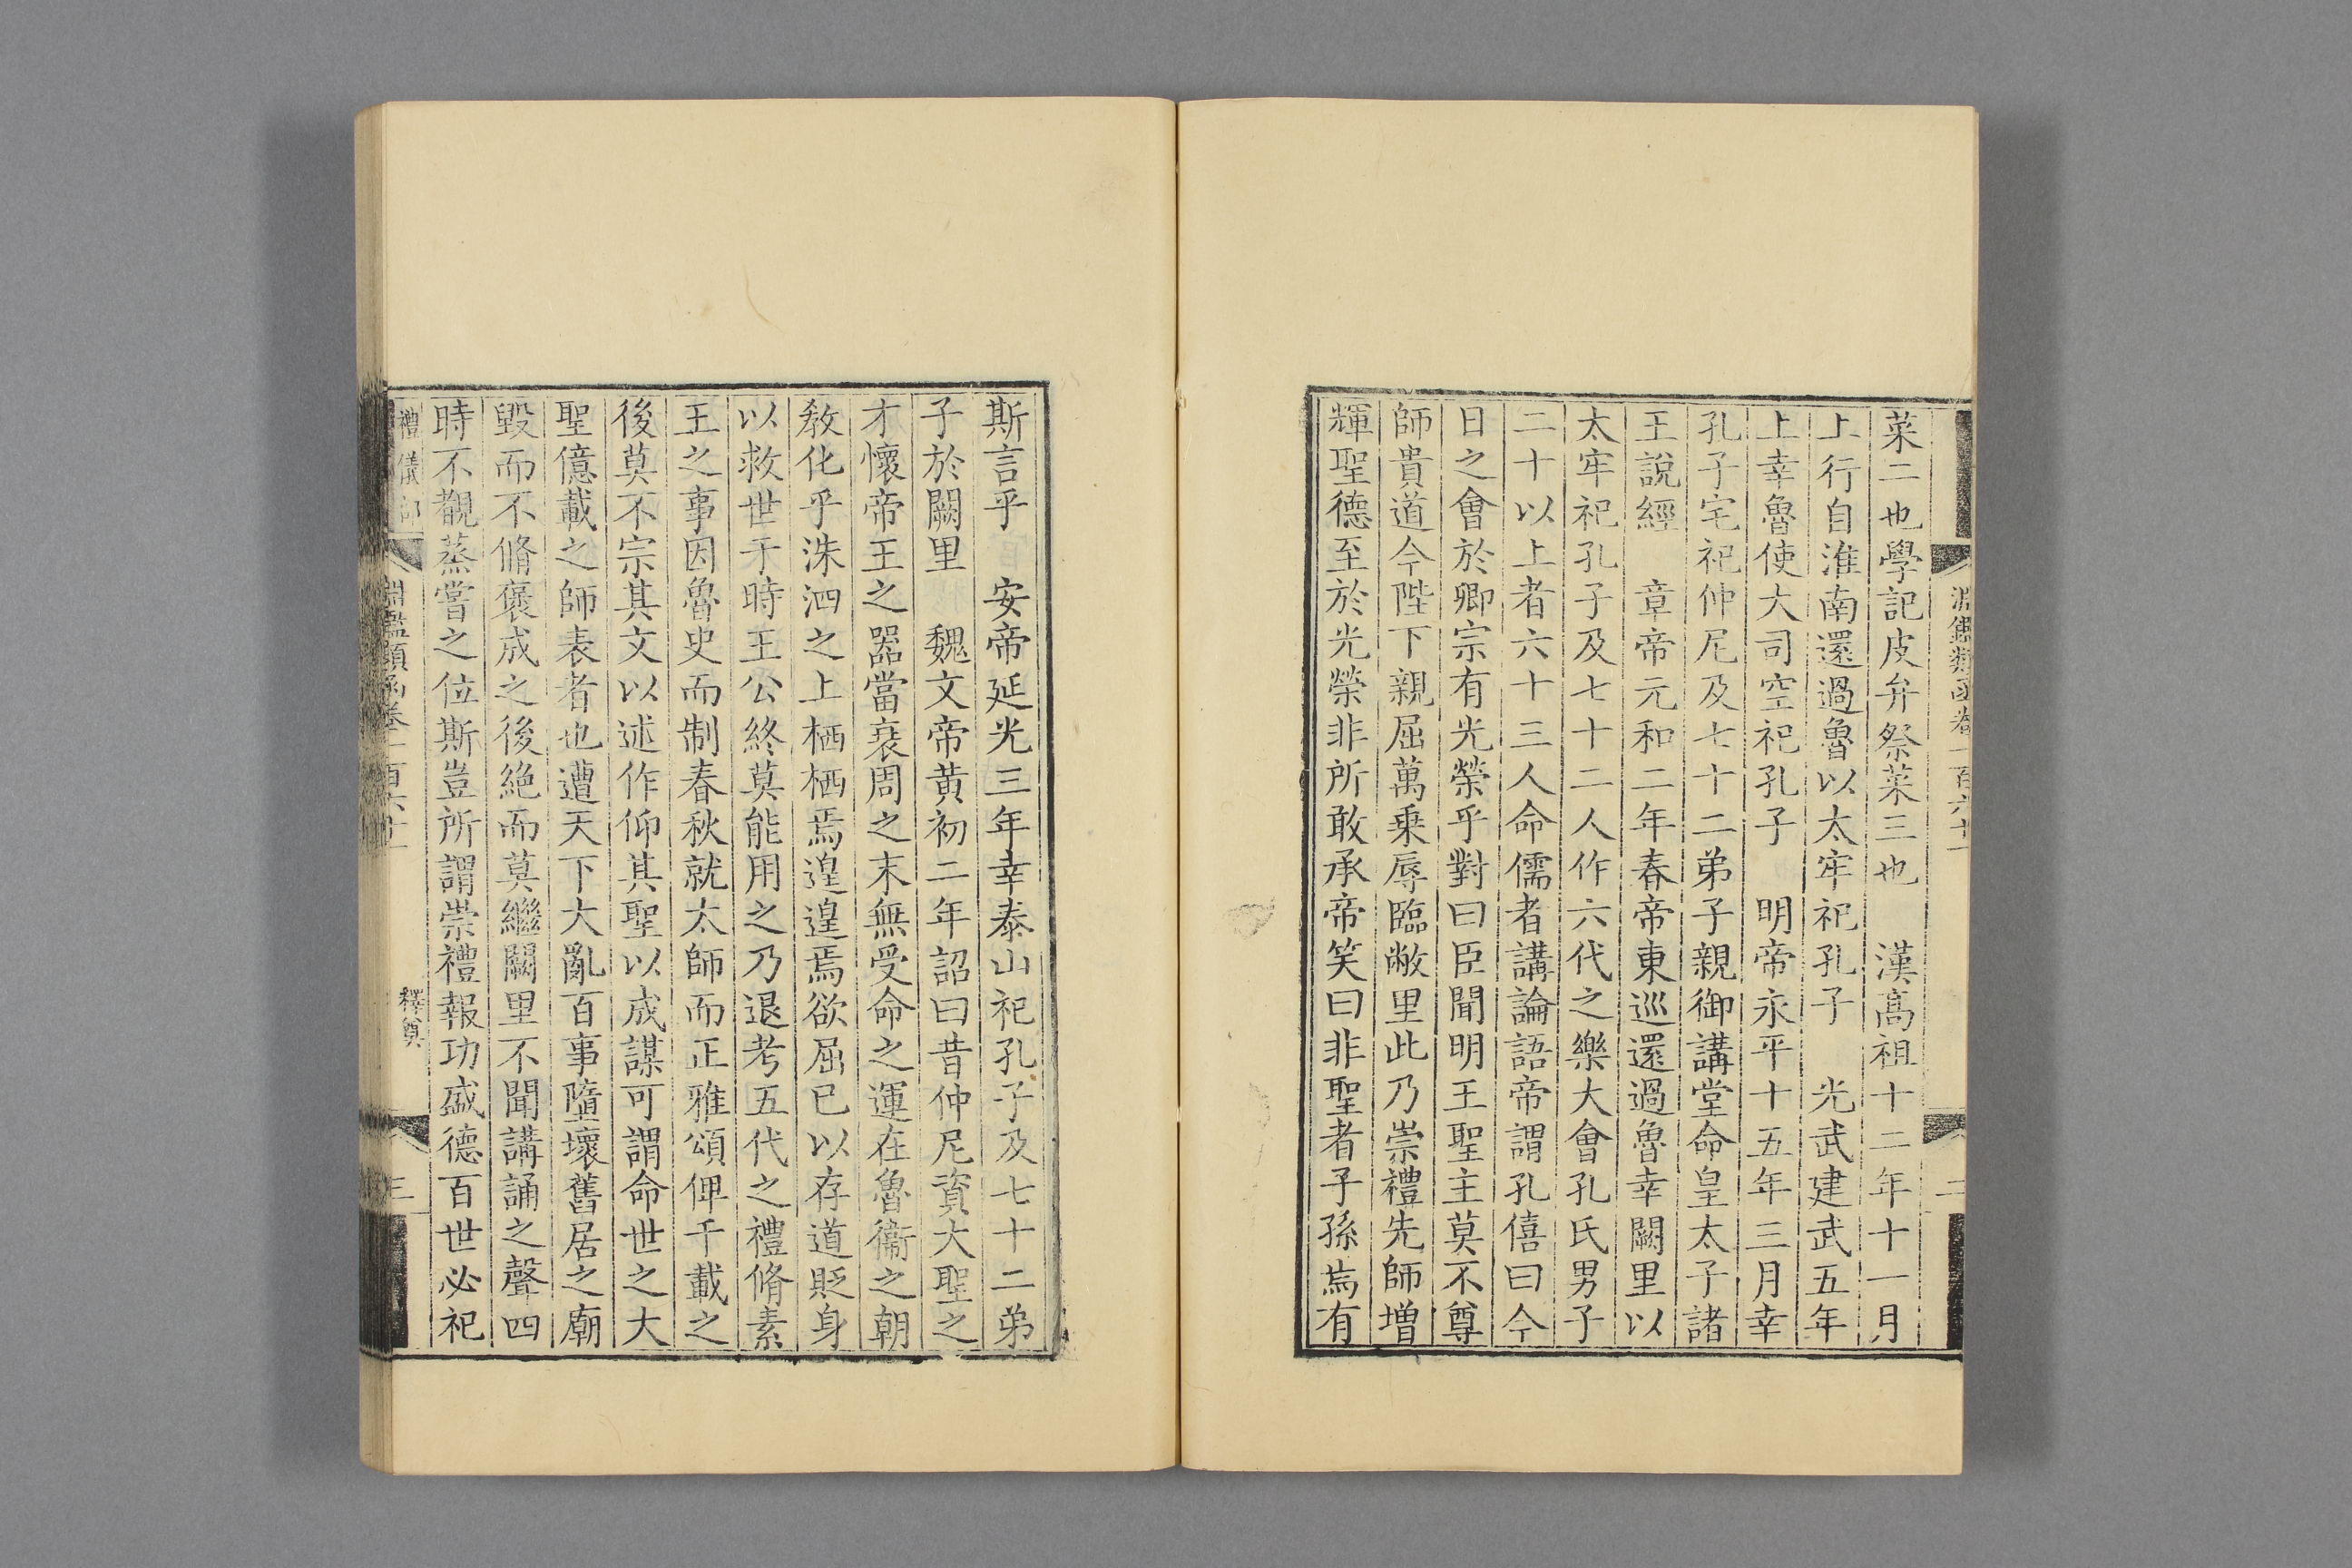 淵鑑類函卷一百六十一
二
菜二也學記皮弁祭菜三也　漢高祖十二年十一月
上行自淮南還過魯以太牢祀孔子　光武建武五年
上幸魯使大司空祀孔子　明帝永平十五年三月幸
孔子宅祀仲尼及七十二弟子親御講堂命皇太子諸
王說經　章帝元和二年春帝東巡還過魯幸闕里以
太牢祀孔子及七十二人作六代之樂大會孔氏男子
二十以上者六十三人命儒者講論語帝謂孔僖曰今
日之會於卿宗有光榮乎對曰臣聞明王聖主莫不尊
師貴道今陛下親屈萬乗辱臨敝里此乃崇禮先師增
輝聖德至於光榮非所敢承帝笑曰非聖者子孫焉有
斯言乎　安帝延光三年幸泰山祀孔子及七十二弟
子於闕里　魏文帝黄初二年詔曰昔仲尼資大聖之
才懷帝王之器當衰周之末無受命之運在魯衞之朝
敎化乎洙泗之上栖栖焉遑遑焉欲屈已以存道貶身
以救世于時王公終莫能用之乃退考五代之禮脩素
王之事因魯史而制春秋就太師而正雅頌俾千載之
後莫不宗其文以述作仰其聖以成謀可謂命世之大
聖億載之師表者也遭天下大亂百事墮壞舊居之廟
毀而不脩褒成之後絶而莫繼闕里不聞講誦之聲四
時不觀蒸嘗之位斯豈所謂崇禮報功盛德百世必祀
禮儀部
淵鑑類函卷一百六十一
釋奠
三